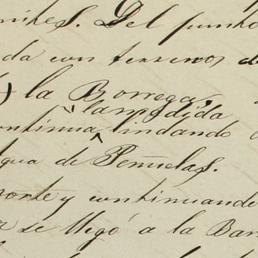 Del punto
da con terrenos de
la Borrega,
la medida
continua lindando
agua de Peñuelas.
norte y continuando
se llegó á la Bar